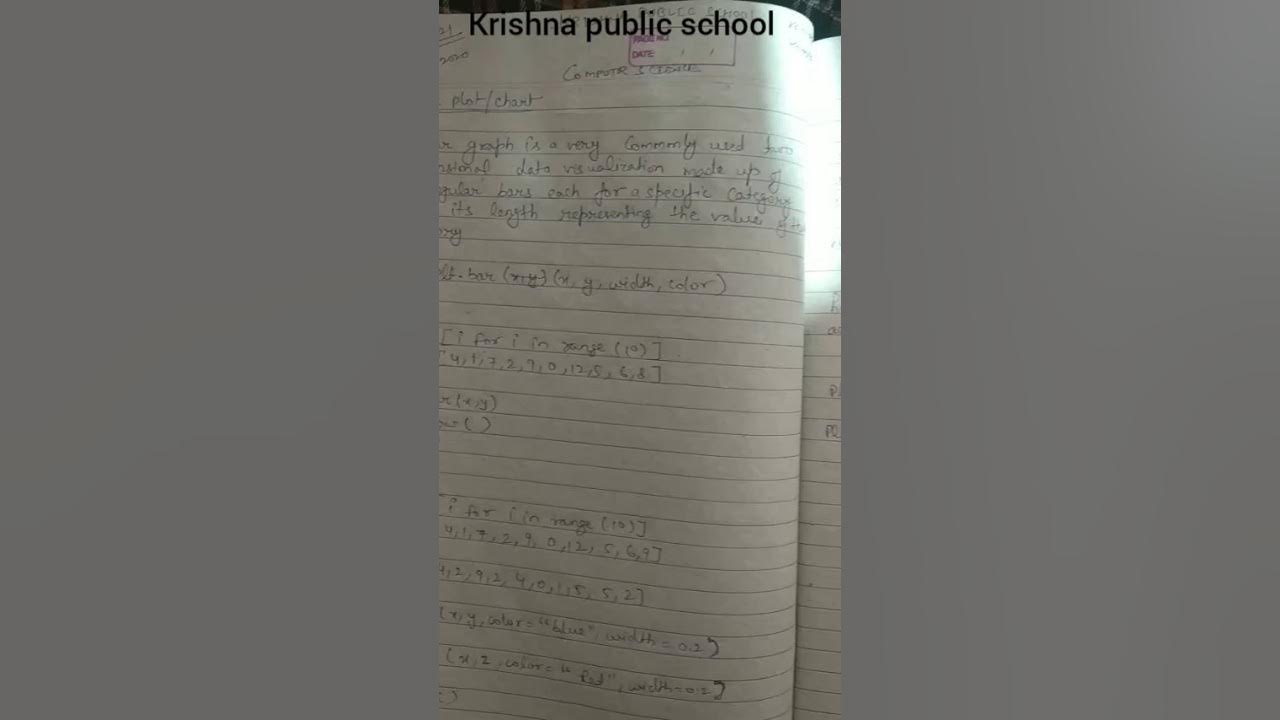 Krishna public school
PUBLIC SCHOOL
2020
DATE
COMPUTR SCIENCE
plot/chart
graph is a very Commonly used two
nsional data visualization made up of
gular bars each for a specific Category
its length representing the value of th
ory
lt.bar (x,y) (x, y, width, color)
[i for i in range (10)]
4,1,7,2,9,0,12,5,6,8]
r(x,y)
w()
i for i in range (10)]
4,1,7,2,9,0,12,5,6,9]
,2,9,2,4,0,1,5,5,2]
(x,y,color="blue", width=0.2)
(x,z,color="Red", width=0.2)
()